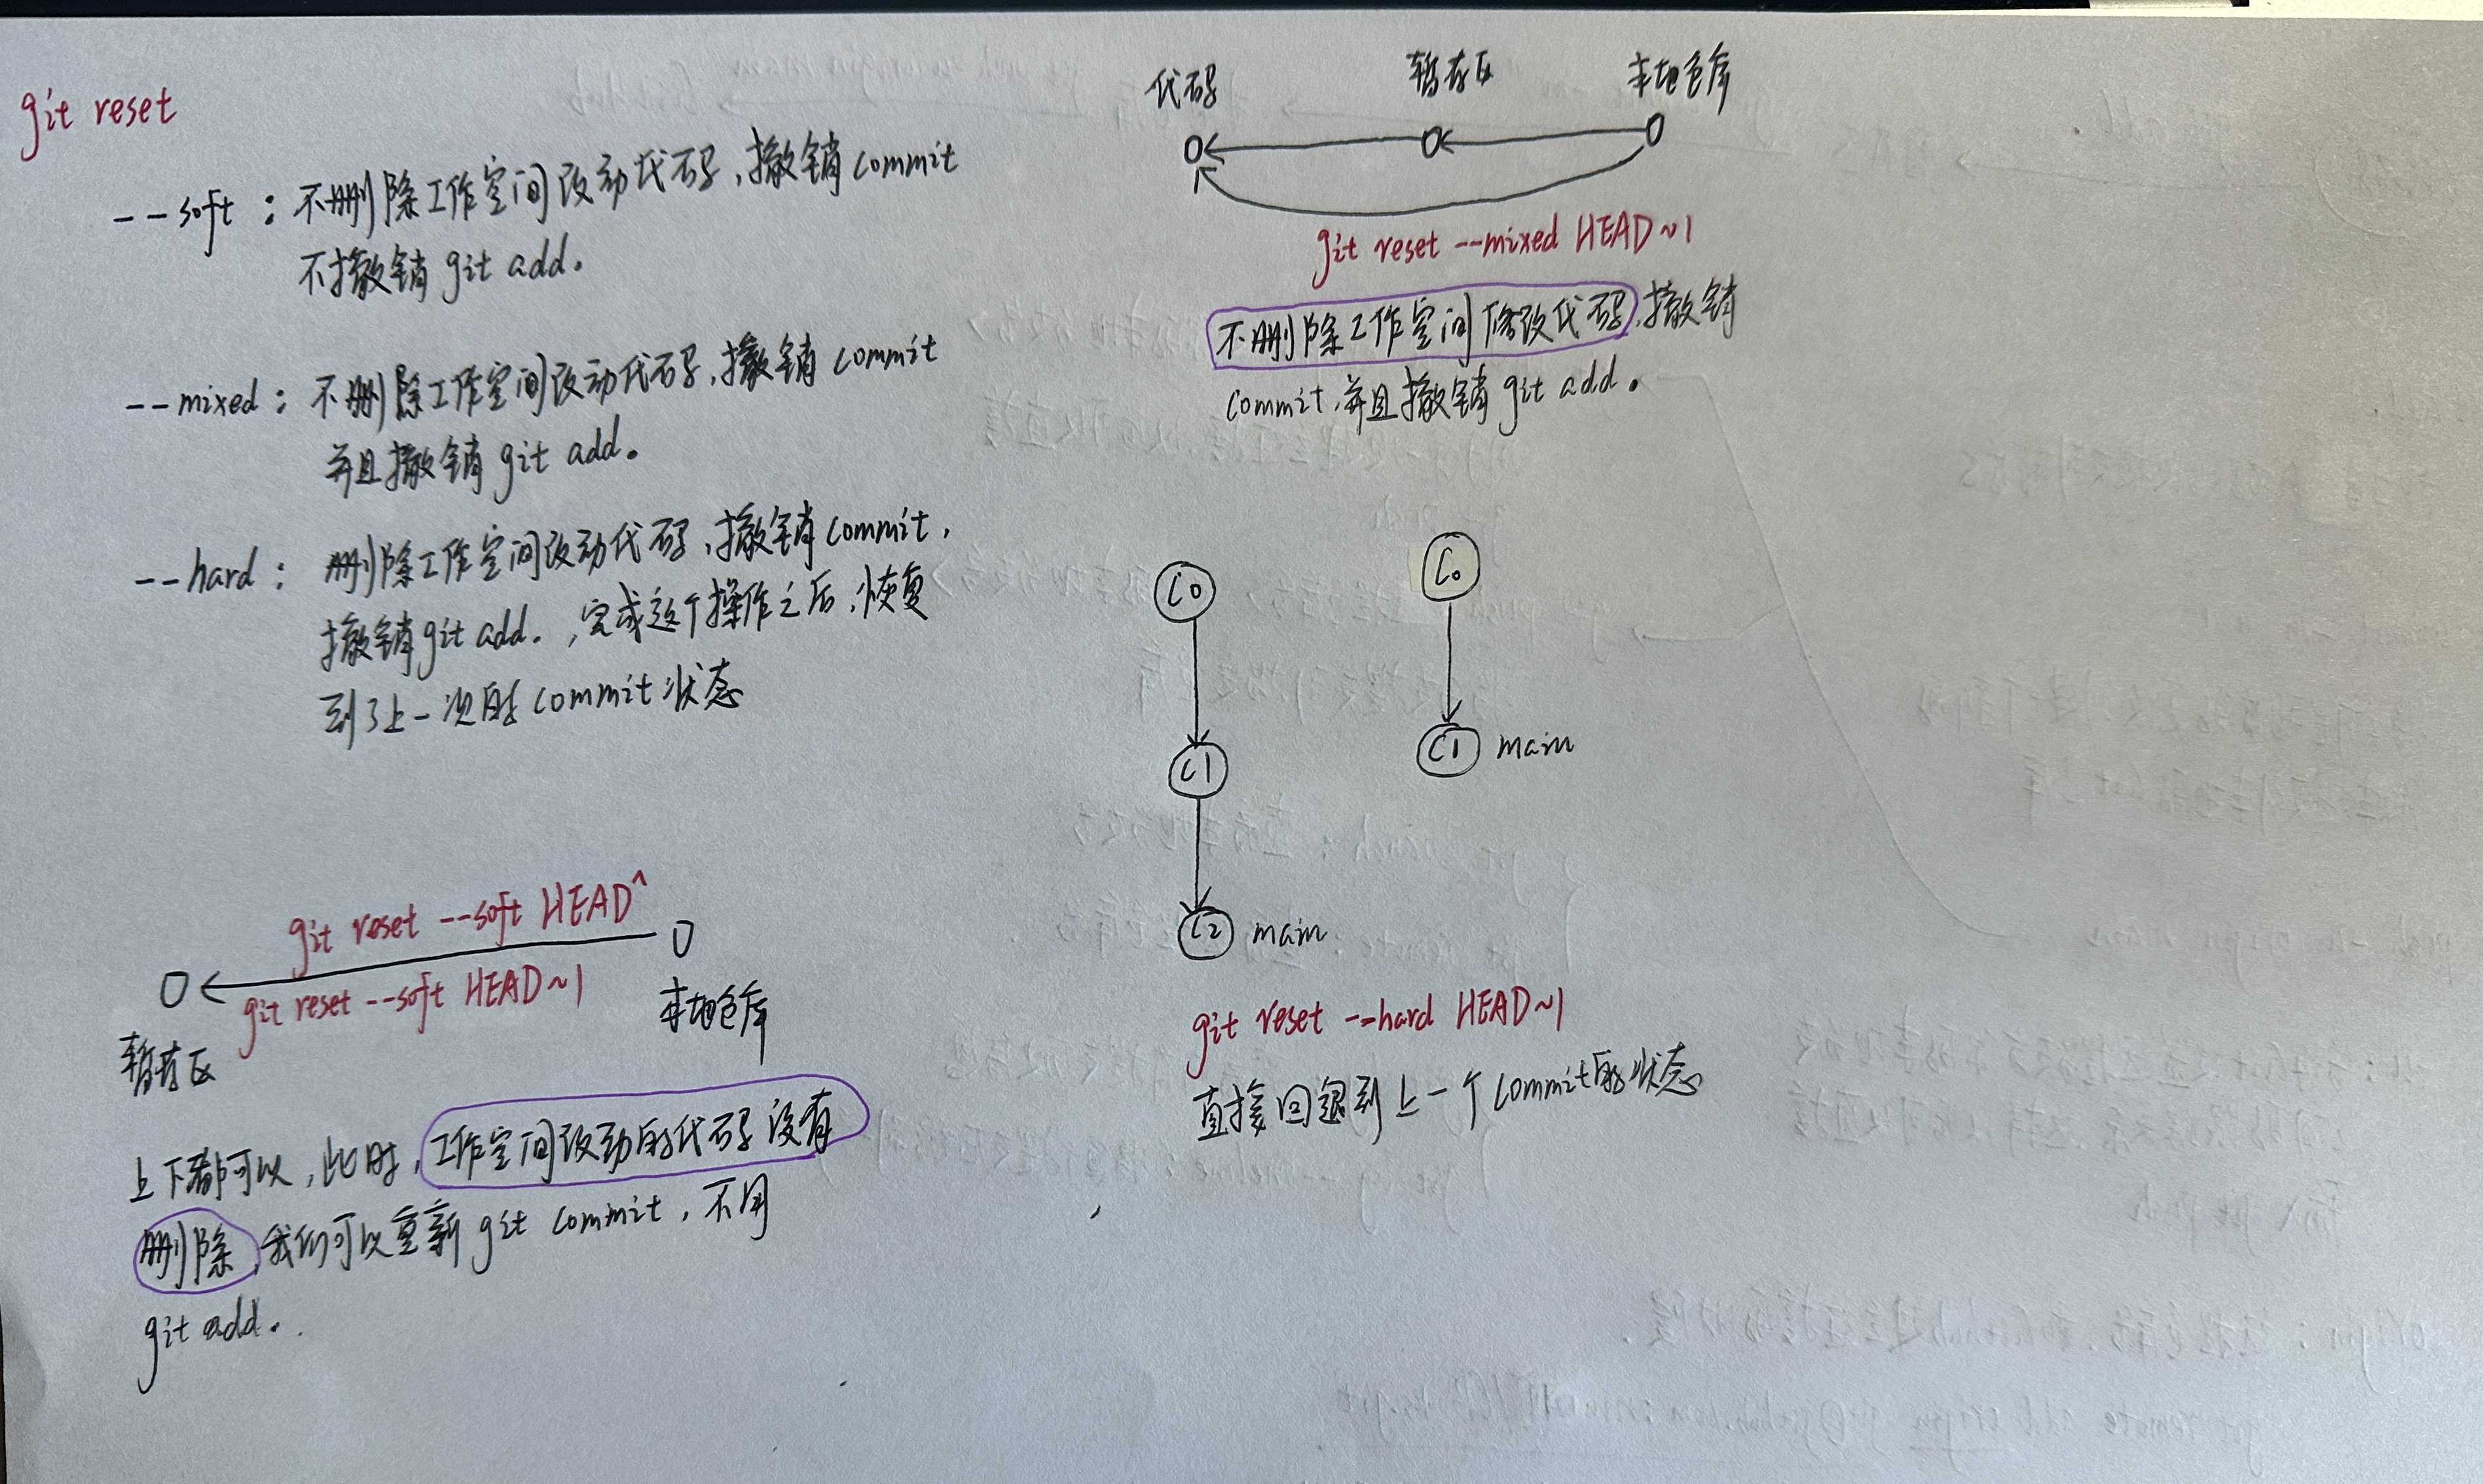 git reset
--soft : 不删除工作空间改动代码,撤销commit
不撤销git add。
--mixed : 不删除工作空间改动代码,撤销commit
并且撤销git add。
--hard : 删除工作空间改动代码,撤销commit,
撤销git add. ,完成这个操作之后,恢复
到了上一次的commit状态
git reset --soft HEAD^
git reset --soft HEAD~1
暂存区
本地仓库
上下都可以,此时,工作空间改动的代码没有
删除,我们可以重新git commit,不用
git add。
代码 暂存区 本地仓库
git reset --mixed HEAD~1
不删除工作空间修改代码,撤销
commit,并且撤销git add。
C0
C1
C2 main
C0
C1 main
git reset --hard HEAD~1
直接回退到上一个commit的状态